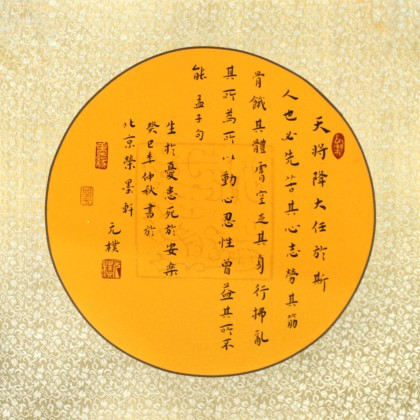 天將降大任於斯
人也必先苦其心志勞其筋
骨餓其體膚空乏其身行拂亂
其所為所以動心忍性曾益其所不
能 孟子句
生於憂患死於安樂
癸巳年仲秋書於
北京榮墨軒
元樸